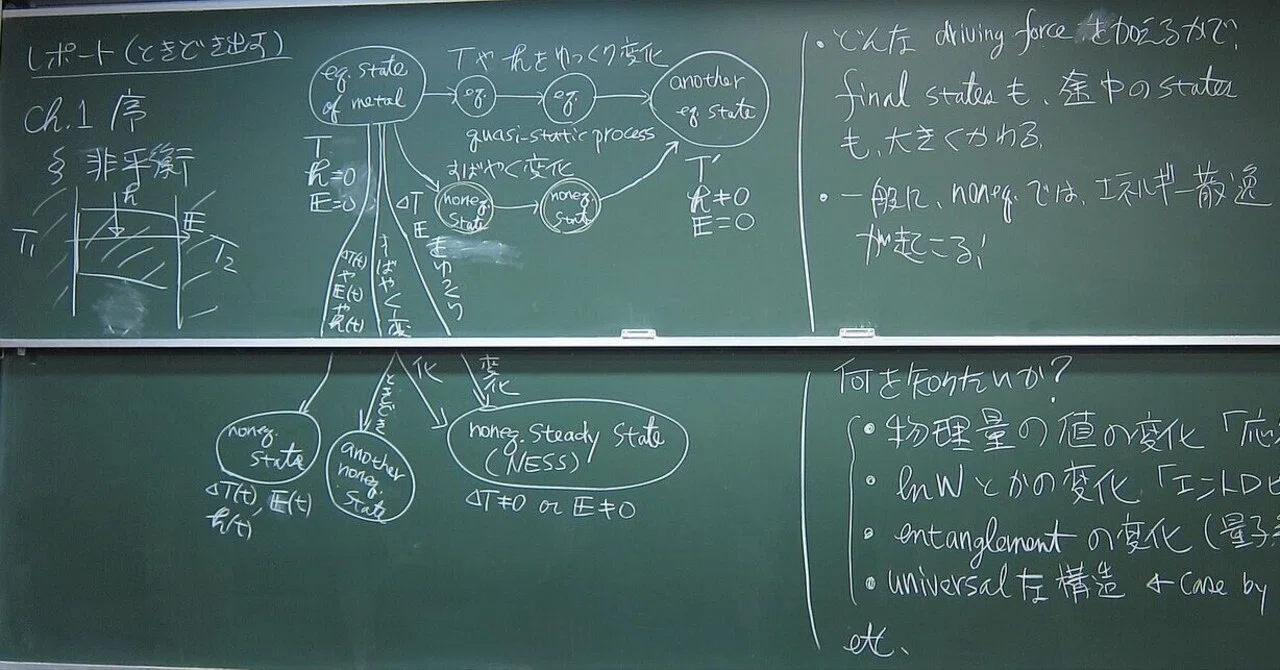 レポート(ときどき出す)
ch.1 序
§ 非平衡
h
E
T₁
T₂
eq. state
of metal
T
h=0
E=0
Tやhをゆっくり変化
eq.
eq.
quasi-static process
another
eq. state
T′
h≠0
E=0
すばやく変化
noneq.
state
noneq.
state
ΔT(t)やE(t)やh(t)
すばやく変化
ときどき
ΔT
Eをゆっくり変化
noneq.
state
ΔT(t), E(t)
h(t)
another
noneq.
state
noneq. steady state
(NESS)
ΔT≠0 or E≠0
・どんな driving force を加えるかで、
final statesも、途中のstates
も、大きくかわる。
・一般に、noneq.では、エネルギー散逸
が起こる!
何を知りたいか?
・物理量の値の変化「応
・lnWとかの変化「エントロピ
・entanglement の変化 (量子
・universalな構造 ← case by
etc.